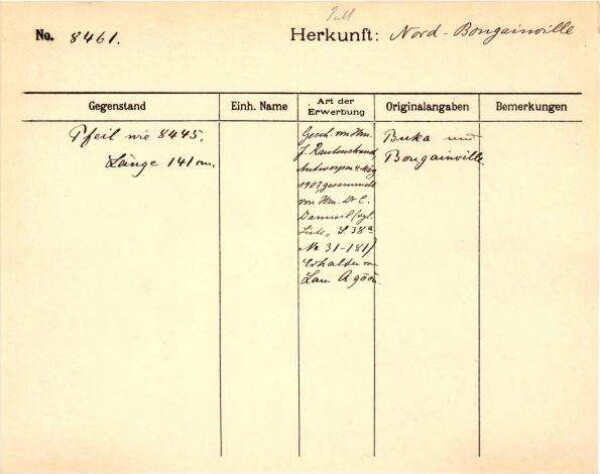 No. 8461.
Herkunft: Nord-Bougainville
Gegenstand
Einh. Name
Art der Erwerbung
Originalangaben
Bemerkungen
Pfeil wie 8445.
Länge 141 cm.
Gesch. von Hrn.
J. Rautenstrauch,
Antwerpen
1903, gesammelt
von Hrn. Dr. C.
(vgl.
Liste, S. 38a
No 31-181)
Erhalten
Buka und
Bougainville.